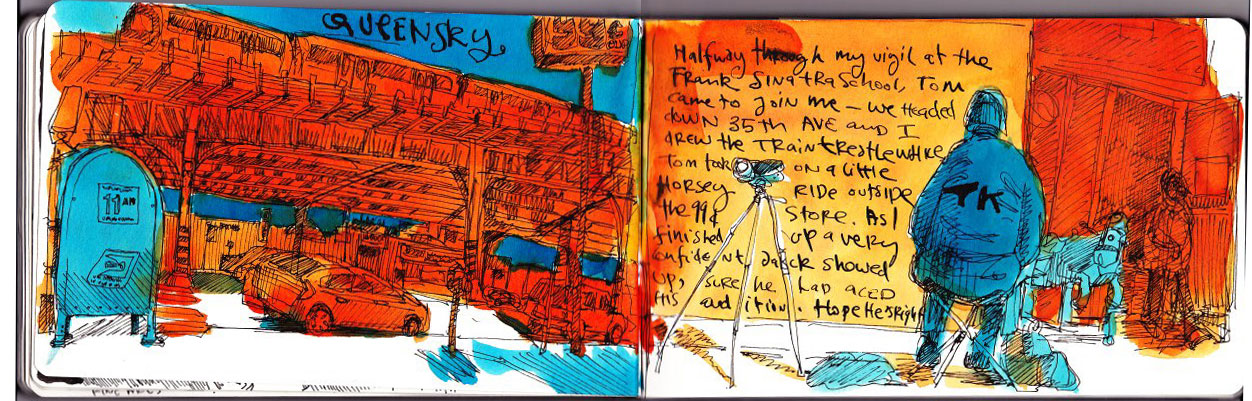 QUEENSKY
11 AM
Halfway through my vigil at the
FRANK SINATRA SCHOOL, TOM
came to join me — we headed
down 35th AVE and I
DREW the TRAIN trestle while
Tom took ON a little
HORSEY RIDE outside
the 99¢ STORE. As I
finished up a very
confident Jack showed
up, sure he had ACED
His audition. Hope He's Right!
TK